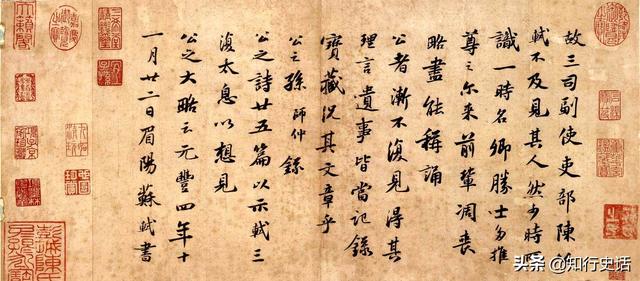 故三司副使吏部陳公
軾不及見其人然少時所
識一時名卿勝士多推
尊之尒來前輩凋喪
略盡能稱誦
公者漸不復見得其
理言遺事皆當記錄
寶藏況其文章乎
公之孫師仲錄
公之詩廿五篇以示軾三
復太息以想見
公之大略云元豐四年十
一月廿二日眉陽蘇軾書
头条 @知行史话